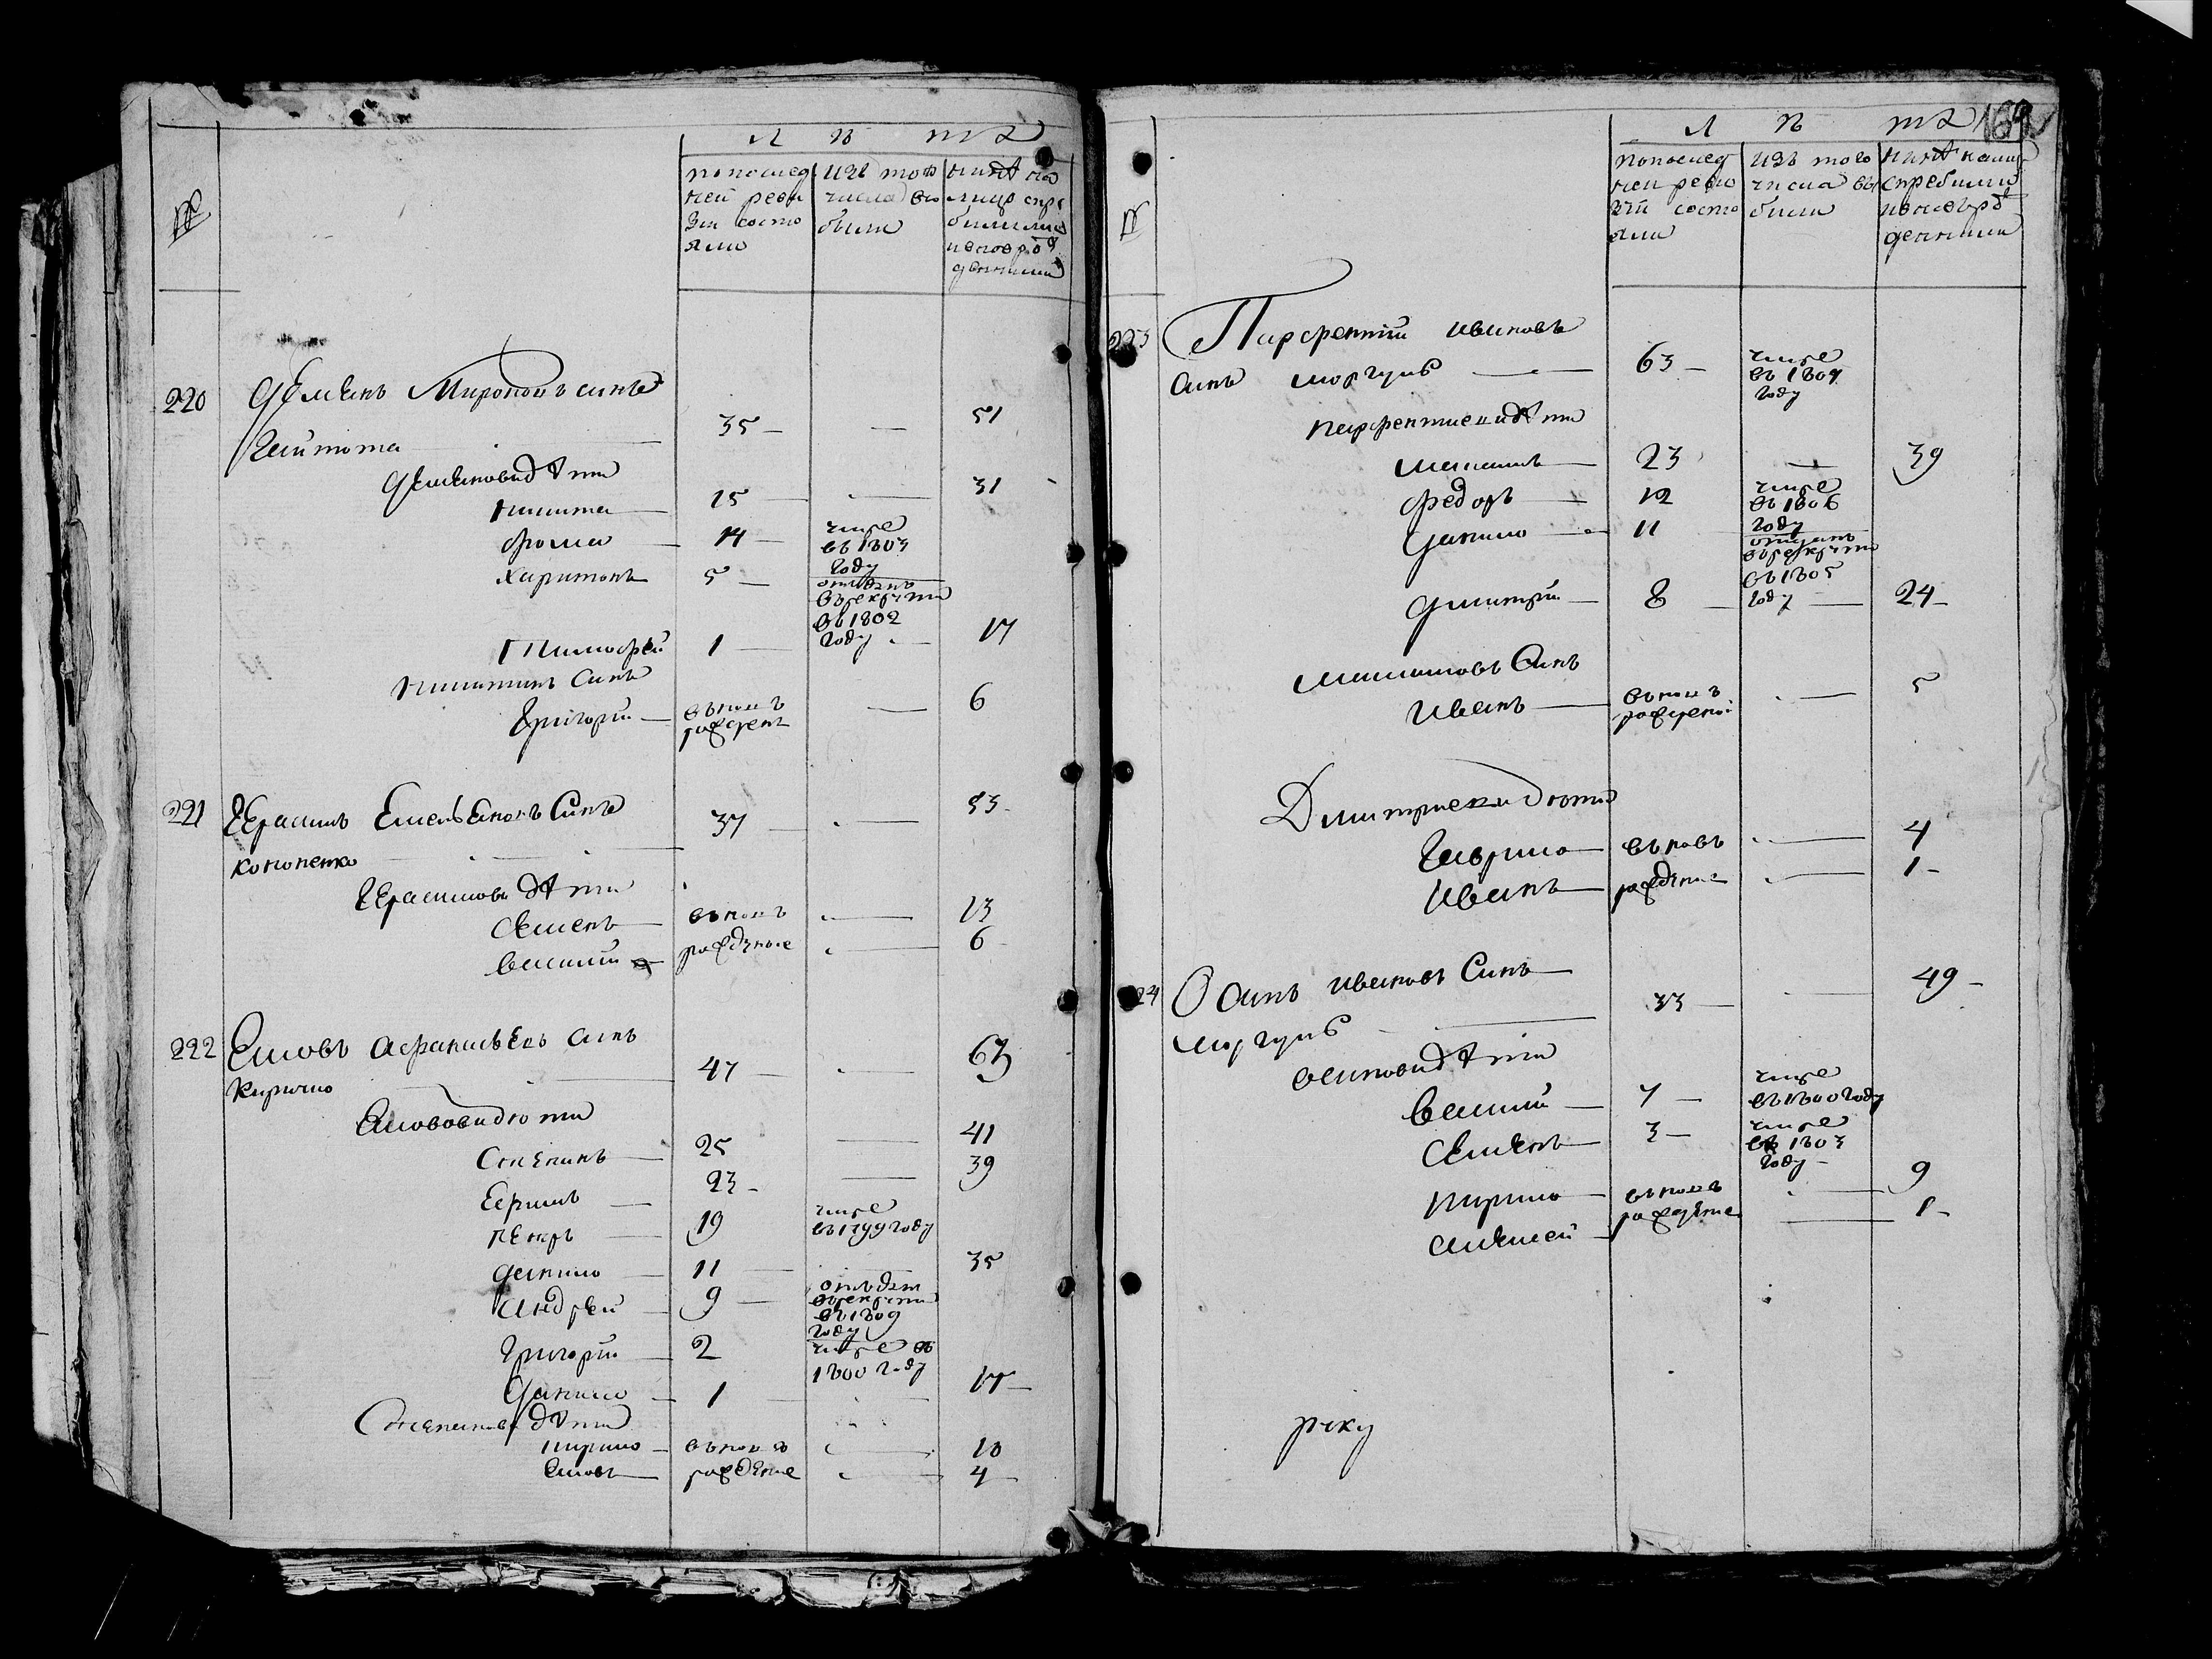 №
Л ѣ та
попослед
ней реви
зіи состо
яли
изъ того
числа вы
были
нынѣ на
лицо спри
былыми
иновород
денными
220 Демьянъ Мироновъ синъ
35 — — 51
Демьяновы дѣти
Никита — 15 — — 31
Фома — 14 — умре
въ 1803
году
Харитонъ 5 — отдданъ
врекруты
въ 1802
году
Тимофей 1 — — 17
Никитинъ синъ
Григорій — вновь
рожденъ — 6
221 Герасимъ Емельяновъ Синъ
37 — — 53
кононенко
Герасимовы дѣти
Семенъ — вновь — 13
Василій — рожденые — 6
222 Еиовъ Афанасьевъ синъ
47 — — 63
Киричко
Еиововы дѣти
Степанъ — 25 — 41
Ефимъ — 23 — — 39
Петръ — 19 умре
въ 1799 году
Данило — 11 — — 35
Андрей — 9 — отъдан
врекруты
въ 1809
году
Григорій — 2 умре въ
1800 году
Данило — 1 — 17 —
Степановы дѣти
Кирило — вновь — 10
Еиовъ — рожденые — 4 —
№
Л ѣ та 169
попослед
ней реви
зіи состо
яли
изъ того
числа вы
были
нынѣ налиц
спребылими
иновъро
денними
223 Парфентій Ивановъ
синъ моргунъ — 63 — умре
въ 1807
году
Парфентиевы дѣти
23 — 39
Федоръ — 12 умре
въ 1806
году
Данило — 11 отданъ
врекруты
въ 1805
году
Дмитрій — 8 — — 24 —
Синъ
Иванъ — вновь
рожденой — 5
Дмитриевы дѣти
Гаврило — вновь — 4
Иванъ — рожденые — 1 —
24 Осипъ Ивановъ Синъ
33 — — 49 —
моргунъ
Осиповы дѣти
Василій — 7 — умре
въ 1800 году
Семенъ — 3 — умре
въ 1803
году —
Кирило — вновь — 9
Алексей — рожденые — 1 —